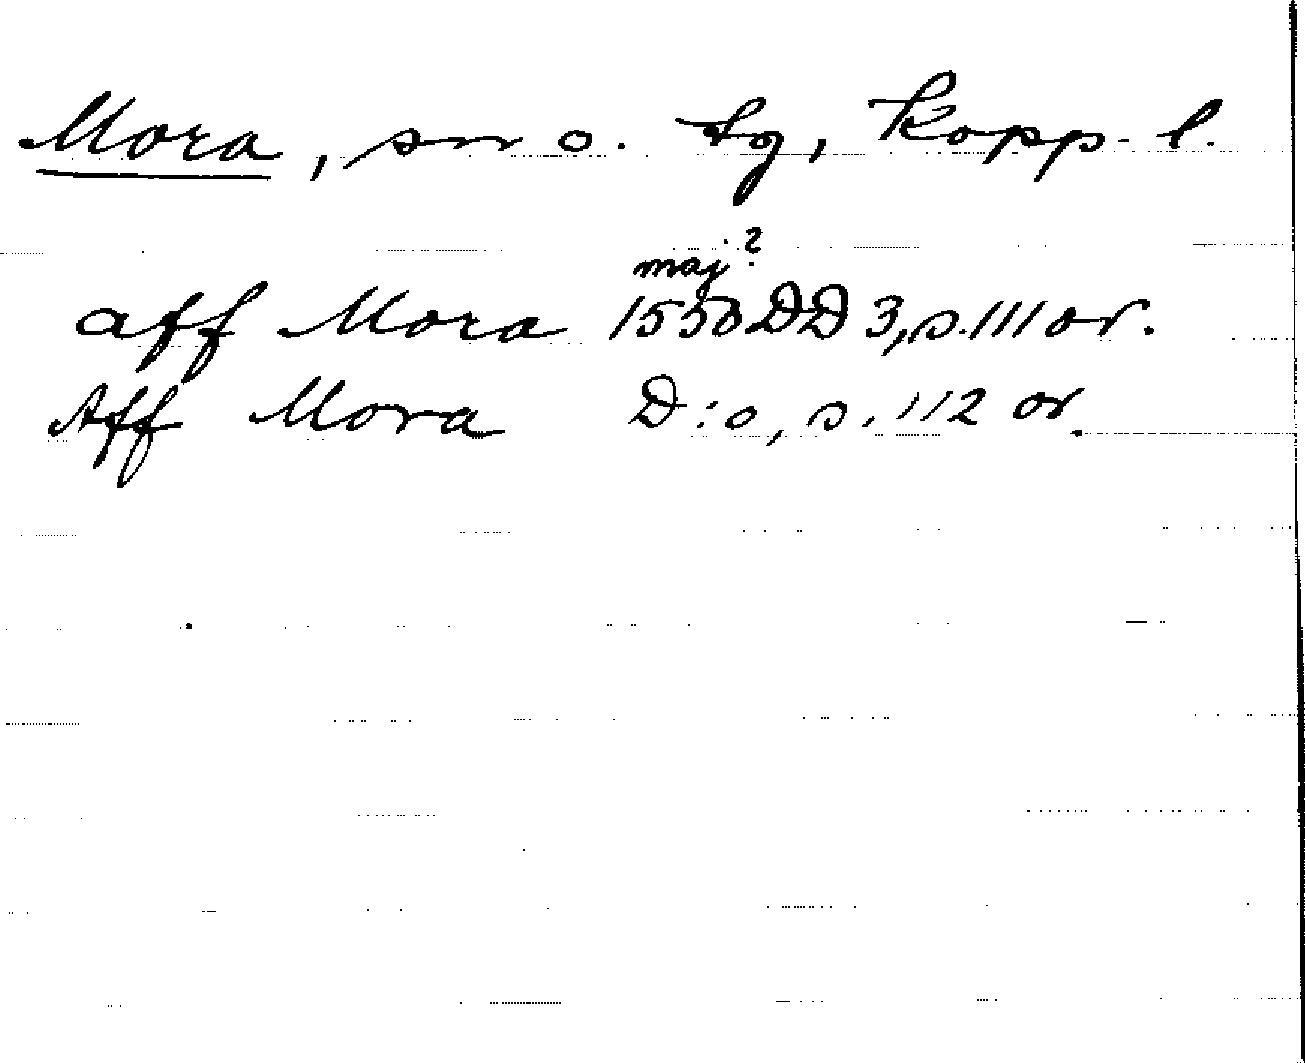 Mora, sn o. tg, Kopp. l.
maj?
aff Mora 1550 DD 3, s. 111 or.
Aff Mora D:o, s. 112 or.